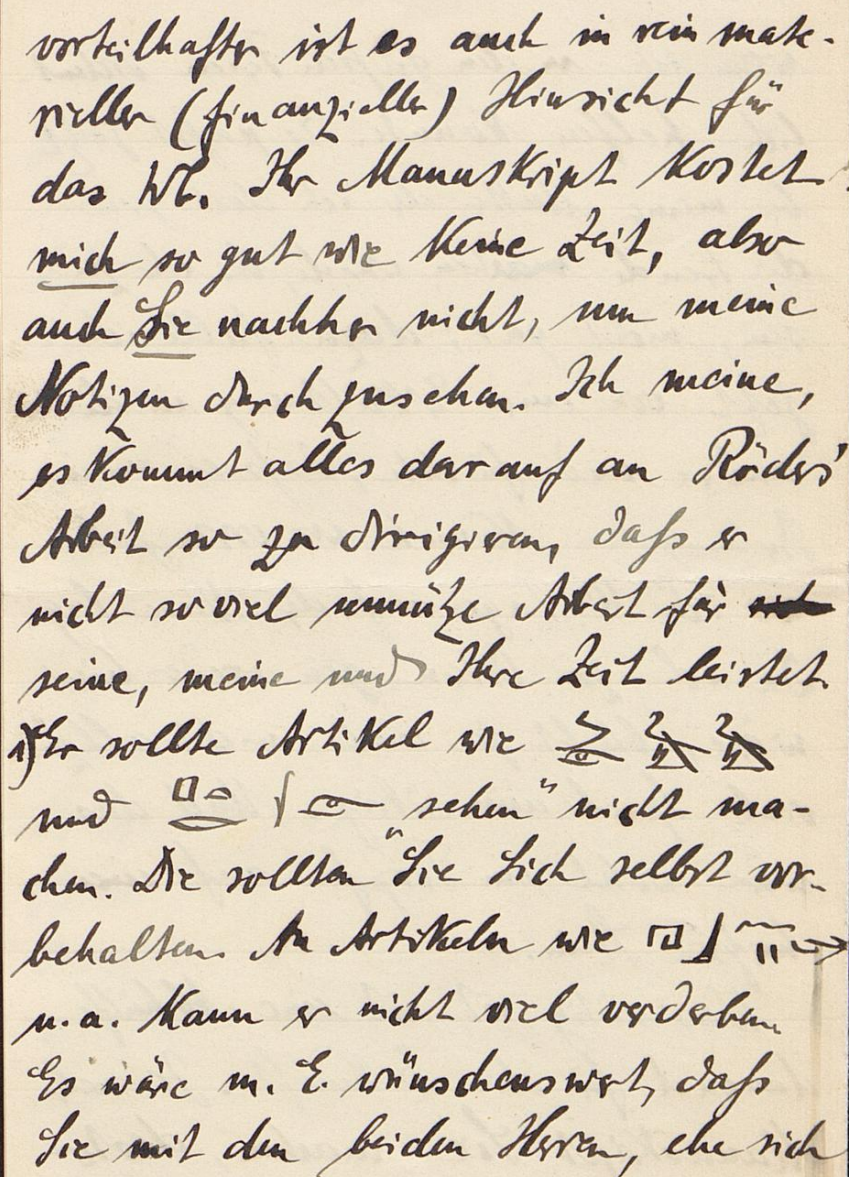 vorteilhafter ist es auch in rein mate-
rieller (finanzieller) Hinsicht für
das Wb. Ihr Manuskript kostet
mich so gut wie keine Zeit, also
auch Sie nachher nicht, um meine
Notizen durchzusehen. Ich meine,
es kommt alles darauf an Röders'
Arbeit so zu dirigieren, dass er
nicht soviel unnütze Arbeit für
seine, meine und Ihre Zeit leistet.
1) Er sollte Artikel wie
und sehen" nicht ma-
chen. Die sollten Sie Sich selbst vor-
behalten. An Artikeln wie
u.a. kann er nicht viel verderben.
Es wäre m. E. wünschenswert, dass
Sie mit den beiden Herren, ehe sich